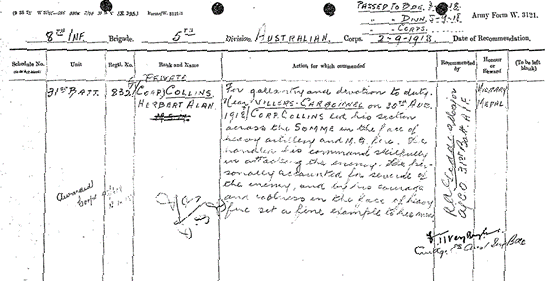 PASSED TO BDE.
" DIVN. 5-9-18
" CORPS.
Army Form W. 3121.
8TH INF. Brigade. 5TH Division. AUSTRALIAN. Corps. 2-9-1918 Date of Recommendation.
Schedule No. Unit Regtl. No. Rank and Name Action for which commended Recommended by Honour or Reward (To be left blank)
PRIVATE
31ST BATT. 832 (CORP) COLLINS
HERBERT ALAN.
For gallantry and devotion to duty.
Near VILLERS-CARBONNEL on 30TH AUG.
1918 CORP. COLLINS led his section
across the SOMME in the face of
heavy artillery and M.G. fire. He
handled his command skilfully
in attacking the enemy. He per-
sonally accounted for several of
the enemy, and by his courage
and coolness in the face of heavy
fire set a fine example to his men.
Major
31ST Batt. A.I.F.
MILITARY
MEDAL
Awarded